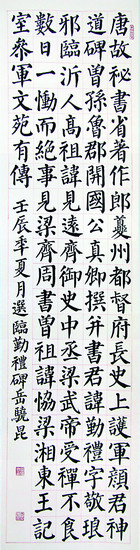 唐故秘書省著作郎夔州都督府長史上護軍顏君神
道碑曾孫魯郡開國公真卿撰并書君諱勤禮字敬琅
邪臨沂人高祖諱見遠齊御史中丞梁武帝受禪不食
數日一慟而絕事見梁齊周書曾祖諱恊梁湘東王記
室叅軍文苑有傳 壬辰季夏月選臨勤禮碑岳曉昆